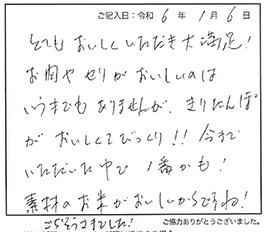 ご記入日：令和 6 年 1 月 6 日
とてもおいしくいただき大満足！
お肉やセリがおいしいのは
いうまでもありませんが、きりたんぽ
がおいしくてびっくり！！今まで
いただいた中で1番かも！
素材のお米がおいしいからですね！
ごちそうさまでした！
ご協力ありがとうございました。